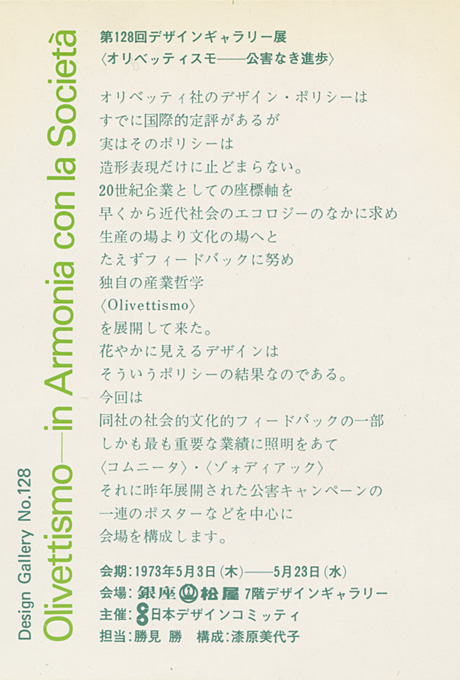 Design Gallery No.128
Olivettismo—in Armonia con la Società
第128回デザインギャラリー展
〈オリベッティスモ——公害なき進歩〉
オリベッティ社のデザイン・ポリシーは
すでに国際的定評があるが
実はそのポリシーは
造形表現だけに止どまらない。
20世紀企業としての座標軸を
早くから近代社会のエコロジーのなかに求め
生産の場より文化の場へと
たえずフィードバックに努め
独自の産業哲学
〈Olivettismo〉
を展開して来た。
花やかに見えるデザインは
そういうポリシーの結果なのである。
今回は
同社の社会的文化的フィードバックの一部
しかも最も重要な業績に照明をあて
〈コムニータ〉・〈ゾォディアック〉
それに昨年展開された公害キャンペーンの
一連のポスターなどを中心に
会場を構成します。
会期:1973年5月3日(木)——5月23日(水)
会場:銀座松屋 7階デザインギャラリー
主催:日本デザインコミッティ
担当:勝見 勝 構成:漆原美代子